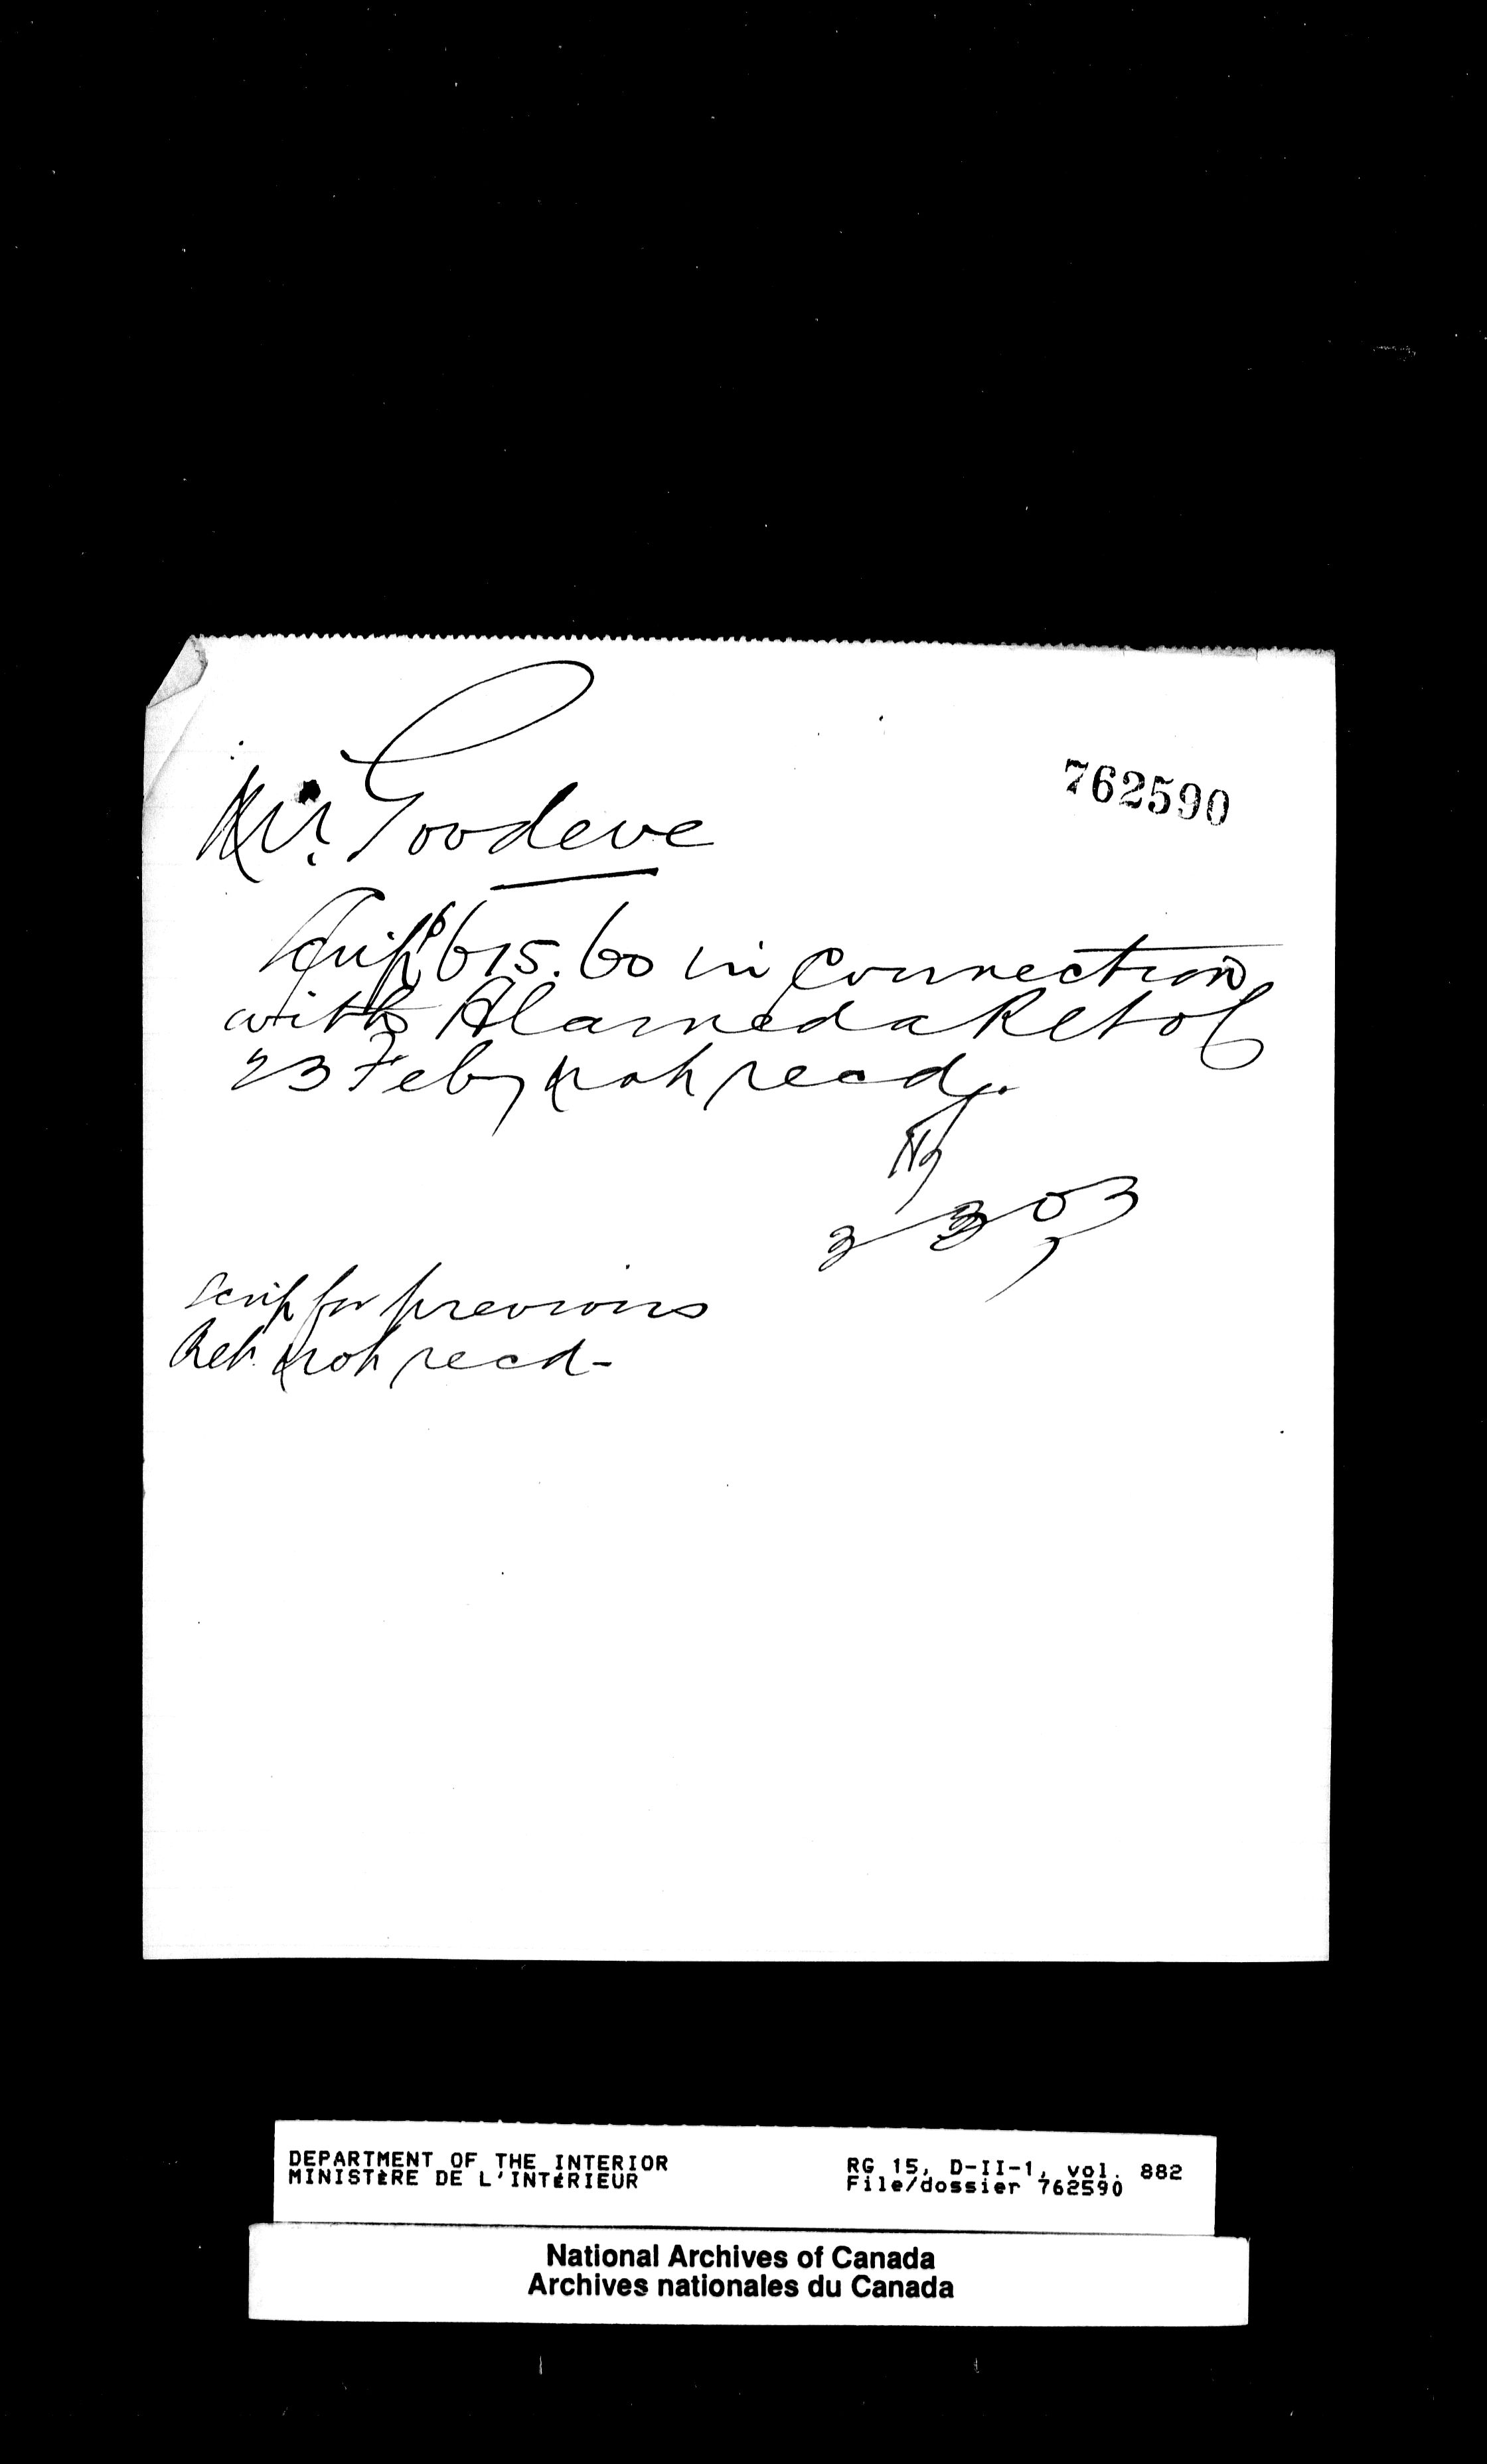 762590
Mr. Goodeve
Scrip $615.60 in connection
with Alameda Ret of
23 Feby not recd.
3/3/03
Scrip for previous
Ret. not recd-
DEPARTMENT OF THE INTERIOR
MINISTÈRE DE L'INTÉRIEUR
RG 15, D-II-1, vol. 882
File/dossier 762590
National Archives of Canada
Archives nationales du Canada